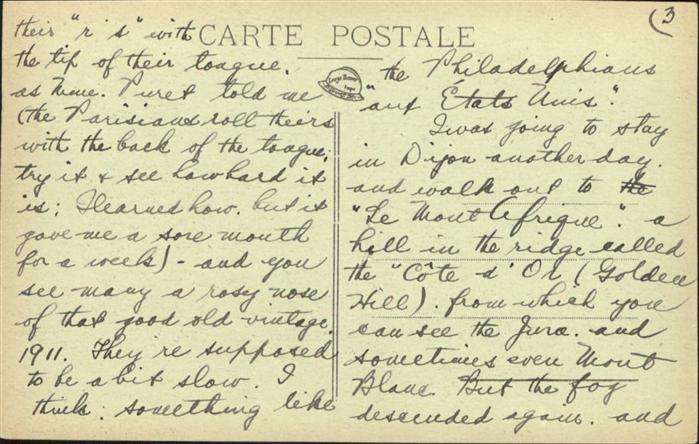 (3
CARTE POSTALE
their "r's" with
the tip of their tongue.
as Mme. Puret told me
(the Parisians roll theirs
with the back of the tongue;
try it & see how hard it
is: I learned how. but it
gave me a sore mouth
for a week) - and you
see many a rosy nose
of that good old vintage.
1911. They're supposed
to be a bit slow. I
think: something like
the Philadelphians
"aux Etats Unis".
I was going to stay
in Dijon another day.
and walk out to the
"Le Mont Afrique". a
hill in the ridge called
the "Côte d'Or (Golden
Hill). from which you
can see the Jura. and
sometimes even Mont
Blanc. But the fog
descended again. and